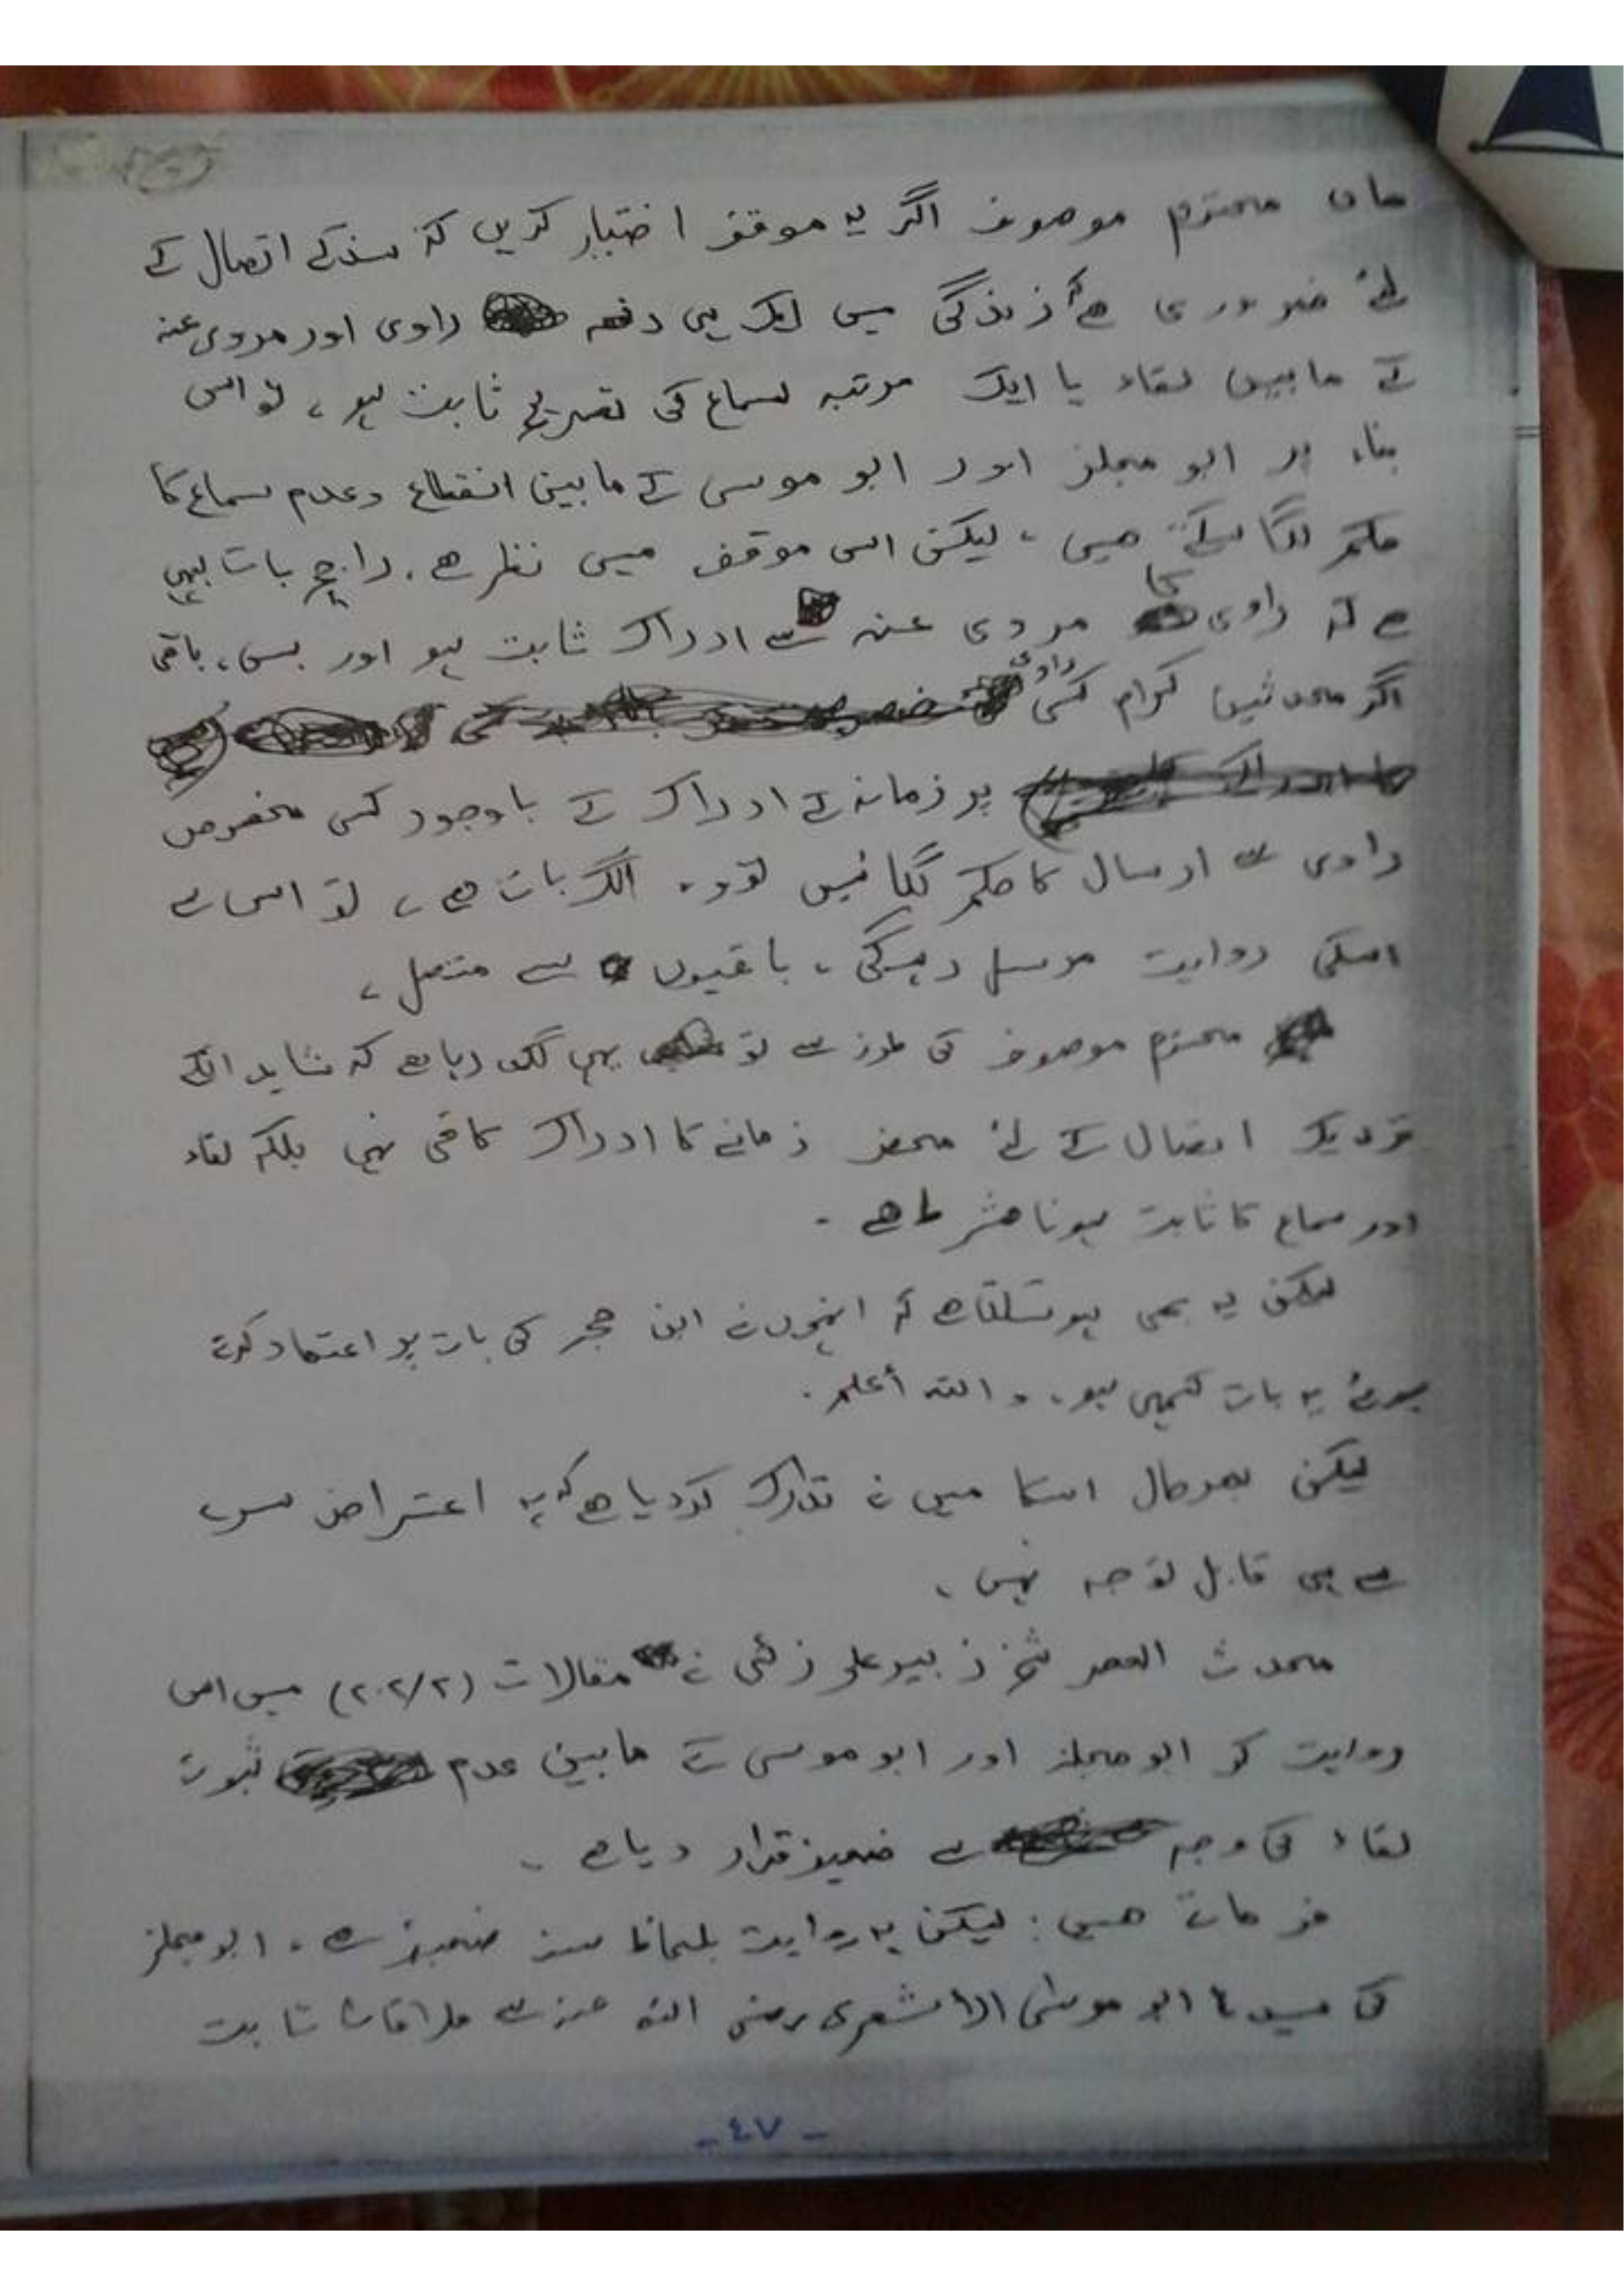 ہاں محترم موصوف اگر یہ موقف اختیار کریں کہ سند کے اتصال کے
لئے ضروری ہے کہ زندگی میں ایک ہی دفعہ راوی اور مروی عنہ
کے مابین لقاء یا ایک مرتبہ سماع کی تصریح ثابت ہو، تو اس
بناء پر ابو مجلز اور ابو موسی کے مابین انقطاع وعدم سماع کا
حکم لگا سکتے ہیں، لیکن اس موقف میں نظر ہے. راجح بات یہی
ہے کہ راوی کا مروی عنہ سے ادراک ثابت ہو اور بس، باقی
اگر محدثین کرام کسی راوی
پر زمانہ کے ادراک کے باوجود کسی مخصوص
راوی سے ارسال کا حکم لگائیں تو وہ الگ بات ہے، تو اس سے
اسکی روایت مرسل رہیگی، باقیوں سے متصل،
محترم موصوف کی طرز سے تو یہی لگ رہا ہے کہ شاید انکے
نزدیک اتصال کے لئے محض زمانے کا ادراک کافی نہیں بلکہ لقاء
اور سماع کا ثابت ہونا شرط ہے -
لیکن یہ بھی ہو سکتا ہے کہ انہوں نے ابن حجر کی بات پر اعتماد کرتے
ہوئے یہ بات کہی ہو. والله أعلم.
لیکن بہرحال اسکا میں نے تدارک کر دیا ہے کہ یہ اعتراض سرے
سے ہی قابل توجہ نہیں،
محدث العصر شیخ زبیر علی زئی نے مقالات (۲۰۲/۲) میں اس
روایت کو ابو مجلز اور ابو موسی کے مابین عدم ثبوت
لقاء کی وجہ سے ضعیف قرار دیا ہے -
فرماتے ہیں: لیکن یہ روایت بلحاظ سند ضعیف ہے. ابو مجلز
کی سیدنا ابو موسٰی الاشعری رضی اللہ عنہ سے ملاقات ثابت
- ٤٧ -